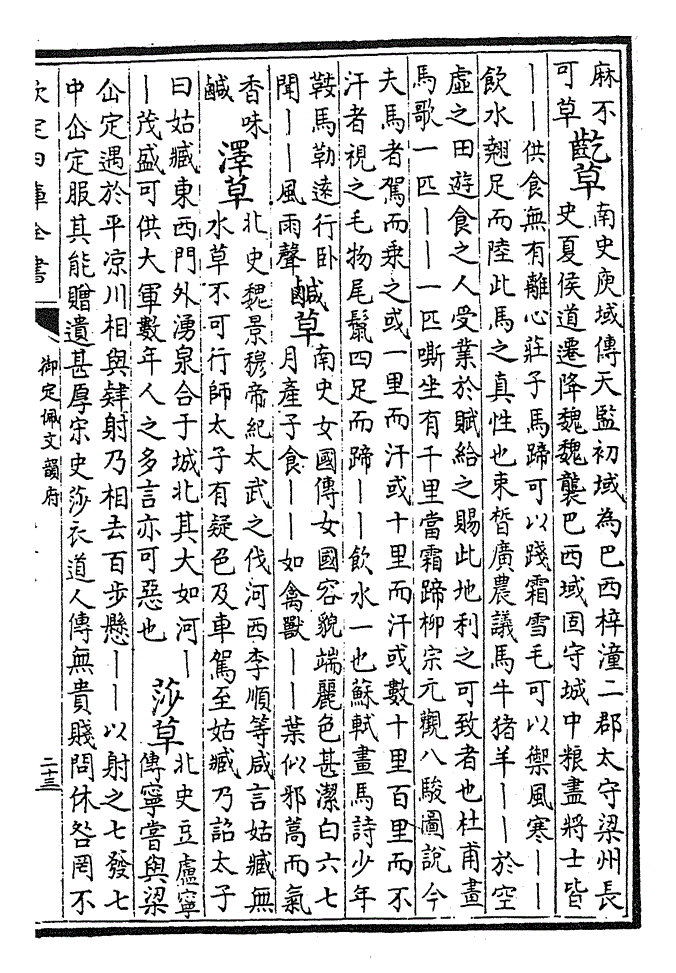 麻不
可草
齕草
南史庾域傳天監初域為巴西梓潼二郡太守梁州長
史夏侯道遷降魏魏襲巴西域固守城中粮盡將士皆
丨丨供食無有離心莊子馬蹄可以踐霜雪毛可以禦風寒丨丨
飲水翹足而陸此馬之真性也束晳廣農議馬牛猪羊丨丨於空
虛之田遊食之人受業於賦給之賜此地利之可致者也杜甫畫
馬歌一匹丨丨一匹嘶坐有千里當霜蹄柳宗元觀八駿圖說今
夫馬者駕而乘之或一里而汗或十里而汗或數十里百里而不
汗者視之毛物尾鬛四足而蹄丨丨飲水一也蘇軾畫馬詩少年
鞍馬勒遠行卧
聞丨丨風雨聲
鹹草
南史女國傳女國容貌端麗色甚潔白六七
月產子食丨丨如禽獸丨丨葉似邪蒿而氣
香味
鹹
澤草
北史魏景穆帝紀太武之伐河西李順等咸言姑臧無
水草不可行師太子有疑色及車駕至姑臧乃詔太子
曰姑臧東西門外湧泉合于城北其大如河丨
丨茂盛可供大軍數年人之多言亦可惡也
莎草
北史豆盧寧
傳寧嘗與梁
仚定遇於平凉川相與肄射乃相去百步懸丨丨以射之七發七
中仚定服其能贈遺甚厚宋史莎衣道人傳無貴賤問休咎罔不
欽定四庫全書
御定佩文韻府
二十三